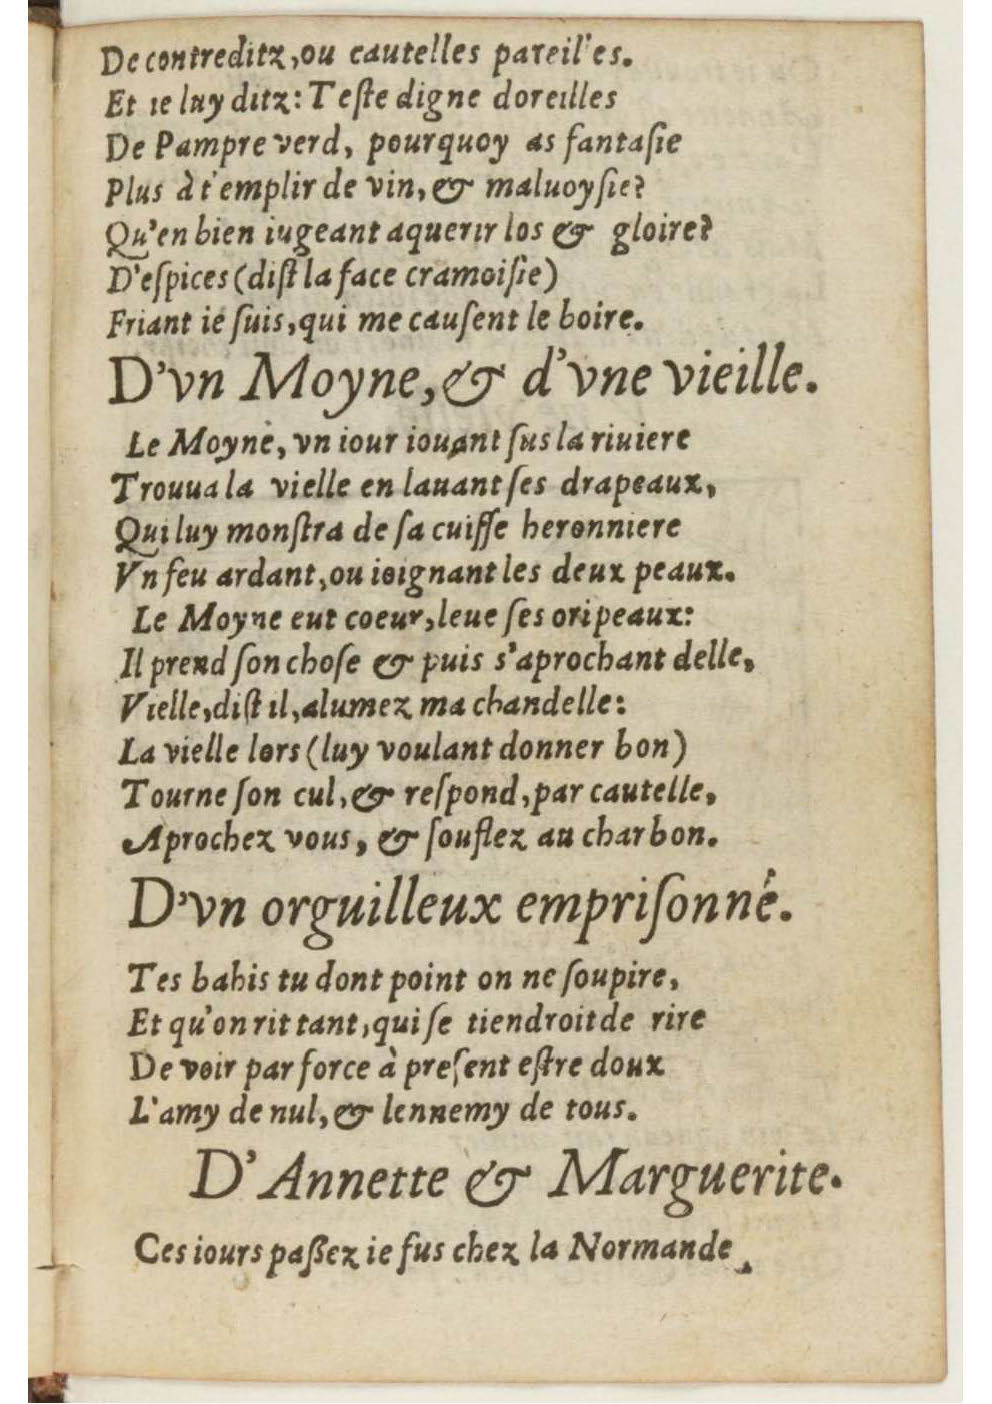 De contreditz, ou cautelles pareil'es.
Et ie luy ditz: Teſte digne doreilles
De Pampre verd, pourquoy as fantaſie
Plus à t'emplir de vin, & maluoyſie?
Qu'en bien iugeant aquerir los & gloire?
D'eſpices (diſt la face cramoiſie)
Friant ie ſuis, qui me cauſent le boire.
D'vn Moyne, & d'vne vieille.
Le Moyne, vn iour iouant ſus la riuiere
Trouua la vielle en lauant ſes drapeaux,
Qui luy monſtra de ſa cuiſſe heronniere
Vn feu ardant, ou ioignant les deux peaux.
Le Moyne eut coeur, leue ſes oripeaux:
Il prend ſon choſe & puis s'aprochant delle,
Vielle, diſt il, alumez ma chandelle:
La vielle lors (luy voulant donner bon)
Tourne ſon cul, & reſpond, par cautelle,
Aprochez vous, & ſouflez au charbon.
D'vn orguilleux empriſonné.
T'es bahis tu dont point on ne ſoupire,
Et qu'on rit tant, qui ſe tiendroit de rire
De voir par force à preſent eſtre doux
L'amy de nul, & lennemy de tous.
D'Annette & Marguerite.
Ces iours paßez ie fus chez la Normande